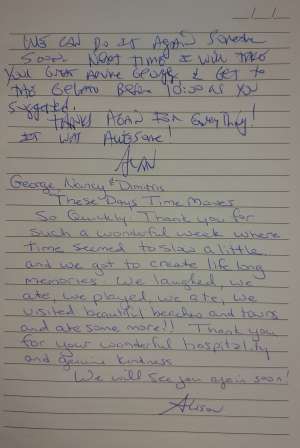 WE CAN DO IT Again Sometime
Soon. Next Time I will take
You Guys
& Get to
The Gelato Before 10:00 as You
Suggested.
THANKS AGAIN FOR EveryThing!
IT WAS AWESOME!
George, Nancy & Dimitris
These Days Time Moves
So Quickly. Thank you for
such a wonderful week where
time seemed to slow a little
and we got to create life long
memories. We laughed, we
ate, we played, we ate, we
visited beautiful beaches and tours
and ate some more!! Thank you
for your wonderful hospitality
and genuine kindness.
We will see you again soon!
Alison